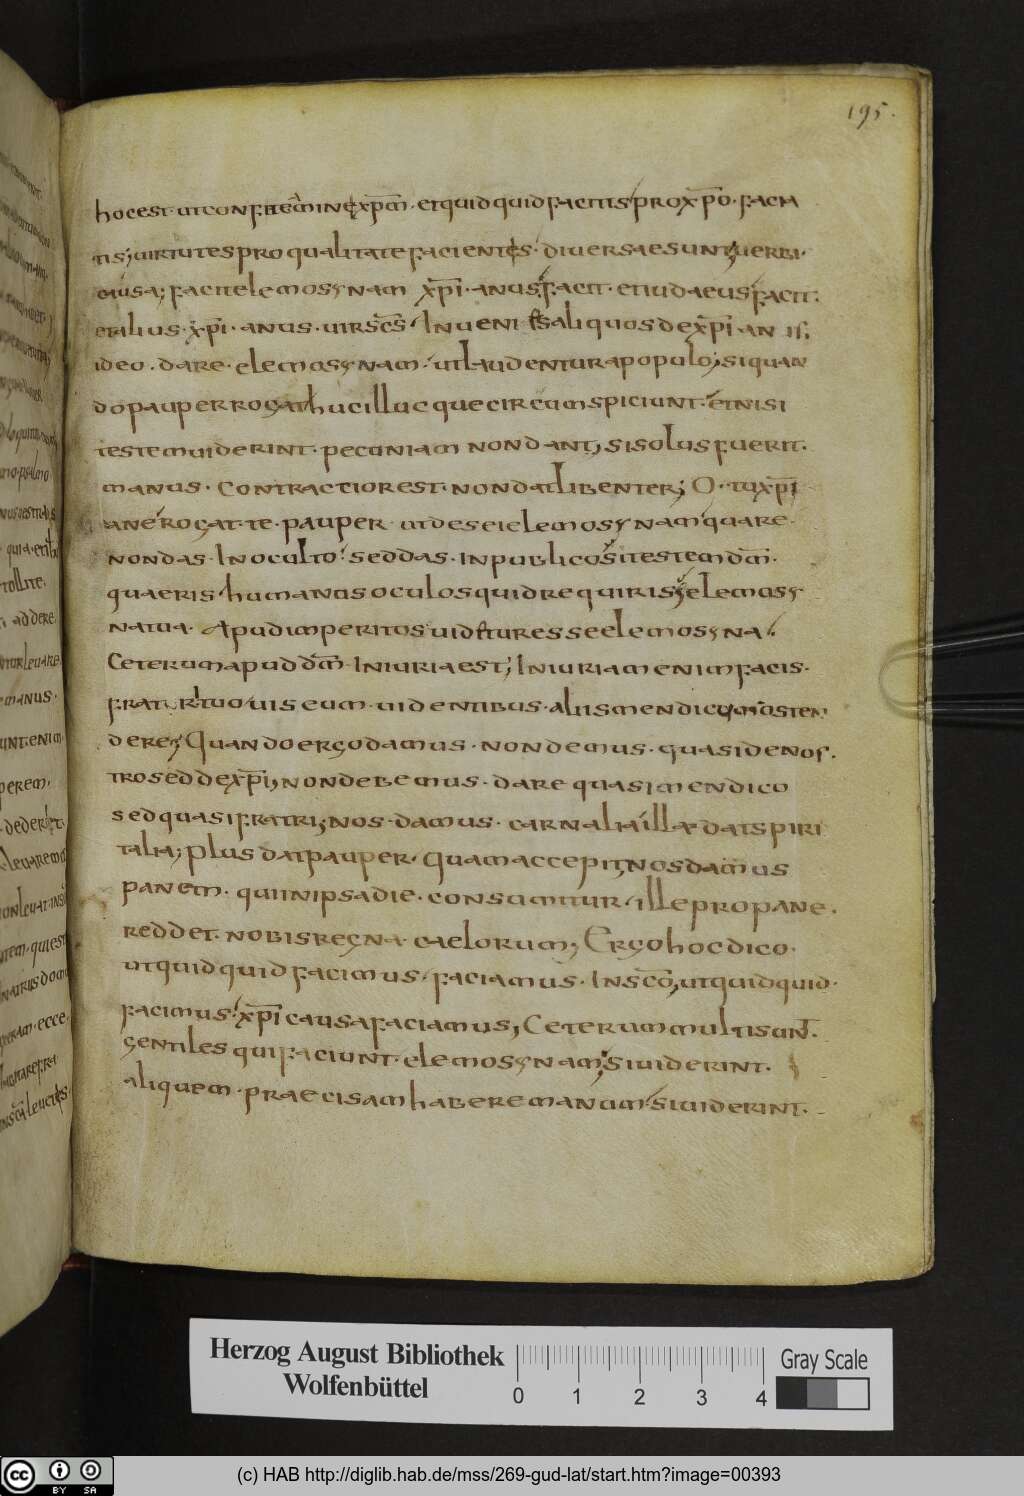 195.
hoc est · ut confitemini xp̄m̄ · et quidquid facitis pro xp̄o · facia
tis; uirtutes pro qualitate facientes · diuersae sunt; uerbi ·
causa; facit elemosynam xp̄i · anus · facit · et iudaeus facit ·
et alius · xp̄i · anus · Inueni aliquos de xp̄i · an is,
ideo · dare · elemosynam · ut laudentur a populo; si quan
do pauper rogat huc illuc que circumspiciunt · et nisi
testem uiderint · pecuniam non dant, si solus fuerit ·
manus · contractior est · non dat libenter; O · tu xp̄i
ane rogat te · pauper · ut des ei elemosynam quare ·
non das · In oculto · sed das · in publico si testem dm̄ ·
quaeris humanos oculos quid requiris; elemosy
na tua · Apud imperitos uidetur esse elemosyna ·
Ceterum apud dm̄ · Iniuria est; Iniuriam enim facis ·
fratri tuo uis eum · uidentibus · aliis mendicum osten
dere; Quando ergo damus · non demus · quasi de nos ·
tro sed de xp̄i, non debemus · dare quasi mendico
sed quasi fratri, nos · damus · carnalia illae dat spiri
talia; plus dat pauper · quam accepit, nos damus
panem · qui in ipsa die · consumitur · ille pro pane ·
reddet · nobis regna · caelorum; Ergo hoc dico ·
ut quidquid facimus · faciamus · In sc̄o, ut quidquid ·
facimus · xp̄i causa faciamus, Ceterum multi sunt ·
gentiles qui faciunt · elemosynam, si uiderint ·
aliquem · praecisam habere manum · si uiderint ·
Herzog August Bibliothek
Wolfenbüttel
0 1 2 3 4
Gray Scale
cc BY SA
(c) HAB http://diglib.hab.de/mss/269-gud-lat/start.htm?image=00393